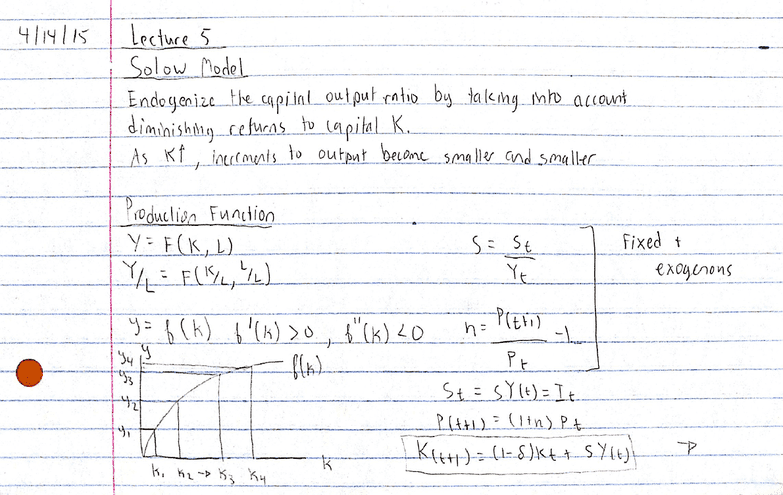 4/14/15 Lecture 5
Solow Model
Endogenize the capital output ratio by taking into account
diminishing returns to capital K.
As K↑, increments to output become smaller and smaller
Production Function
Y = F(K, L)
Y/L = F(K/L, L/L)
y = f(k) f'(k) > 0, f''(k) < 0
S = St / Yt
Fixed + exogenous
n = P(t+1) / Pt - 1
St = SY(t) = It
P(t+1) = (1+n) Pt
K(t+1) = (1-δ)Kt + SY(t) →
y
y4
y3
y2
y1
f(k)
k1 k2 → k3 k4 k